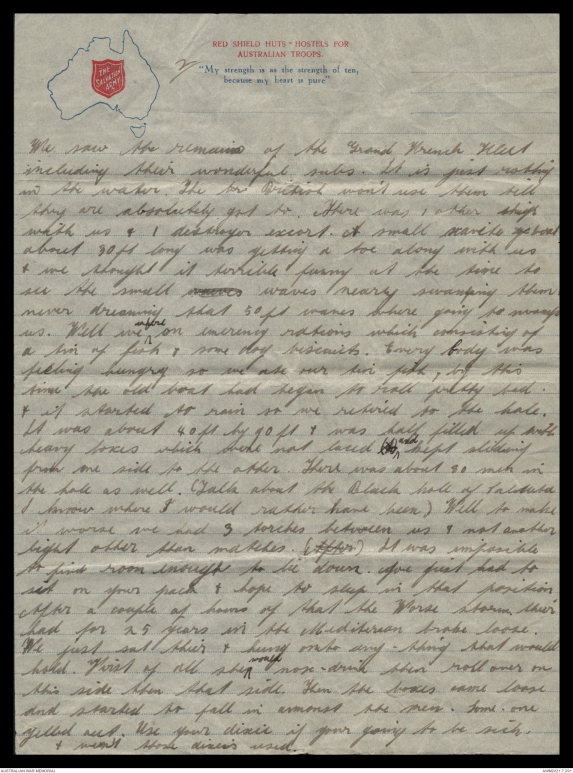 RED SHIELD HUTS & HOSTELS FOR
AUSTRALIAN TROOPS.
THE
SALVATION
ARMY
"My strength is as the strength of ten,
because my heart is pure"
We saw the remains of the Grand French Fleet
including their wonderful subs. It is just rotting
in the water. The British won't use them till
they are absolutely got to. There was 1 other ship
with us & 1 destroyer escort. A small
about 30 ft long was getting a toe along with us
& we thought it terrible funny at the time to
see the small waves waves nearly swamping them
never dreaming that 50 ft waves where going to
us. Well we were on emerency rations which consisting of
a tin of fish & some dog biscuits. Every body was
feeling hungry so we ate our tin fish, by this
time the old boat had began to roll pretty bad.
& it started to rain so we retired to the hole.
It was about 40 ft by 90 ft & was half filled up with
heavy boxes which were not laced and kept sliding
from one side to the other. There was about 80 men in
the hole as well. (Talk about the Black hole of
I know where I would rather have been) Well to make
it worse we had 3 torches between us & not another
light other than matches. (After) It was impossible
to find room enough to be down. You just had to
sit on your pack & hope to sleep in that position.
After a couple of hours of that the Worse storm their
had for 25 years in the Mediterian broke loose.
We just sat their & hung onto any-thing that would
hold. First of all she would nose-drive then roll over on
this side then that side. Then the boxes came loose
and started to fall in amonst the men. Some-one
yelled out. Use your dixie if your going to be sick.
& wern't those dixies used.
AUSTRALIAN WAR MEMORIAL